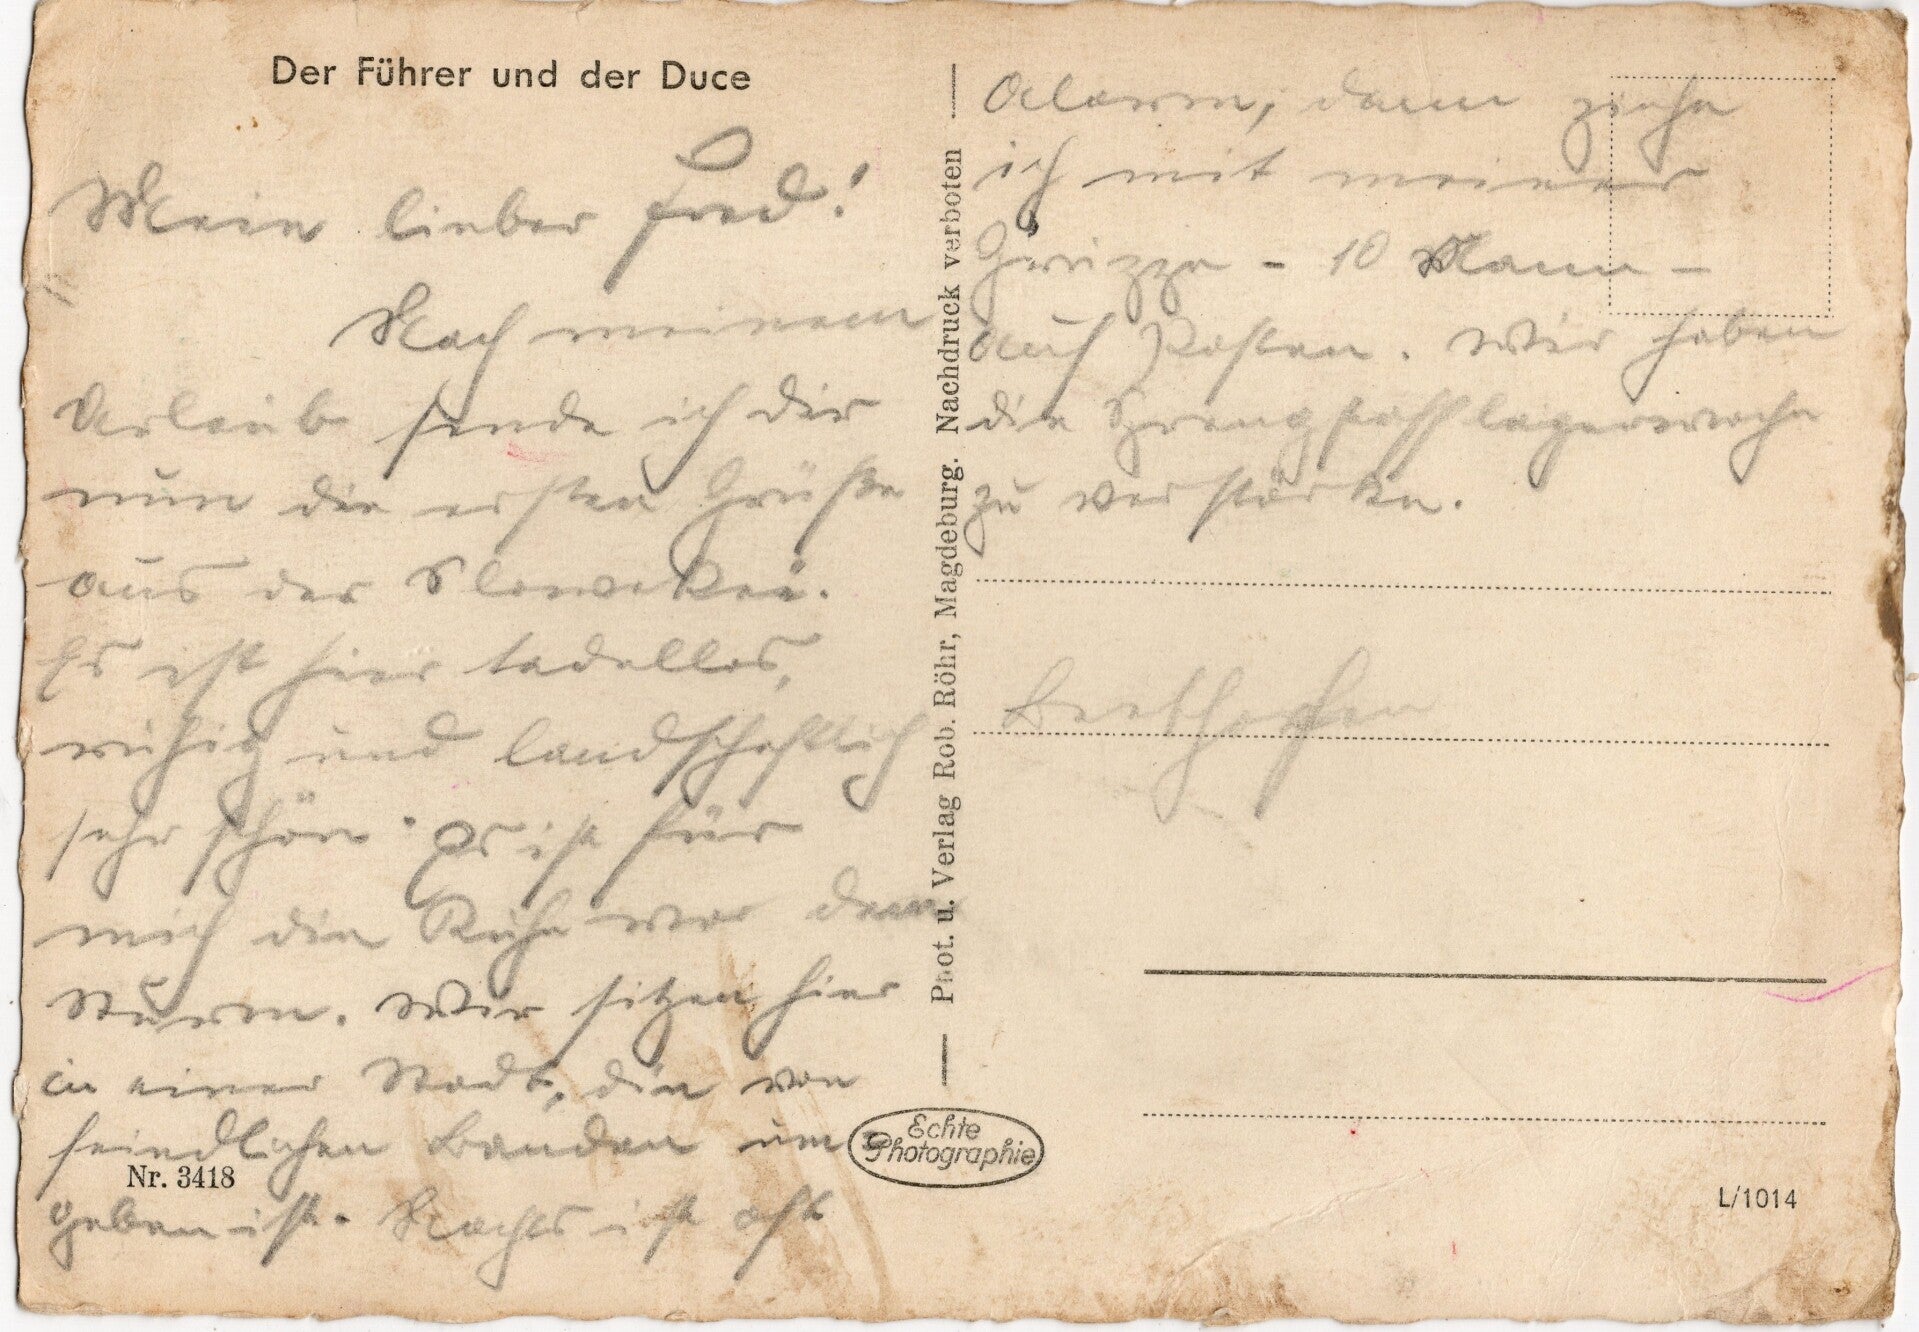 Der Führer und der Duce
Mein lieber Fred!
Nach meinem
Urlaub sende ich dir
nun die ersten Grüße
aus der Slowakei.
Es ist hier tadellos,
ruhig und landschaftlich
sehr schön. Es ist für
mich die Ruhe vor dem
Sturm. Wir sitzen hier
in einer Stadt, die von
feindlichen Banden um
geben ist. Nachts ist oft
Nr. 3418
Phot. u. Verlag Rob. Röhr, Magdeburg. Nachdruck verboten
Echte
Photographie
Alarm, dann ziehe
ich mit meiner
Gruppe - 10 Mann -
auf Posten. Wir haben
die Sprengstofflagerwache
zu verstärken.
L/1014